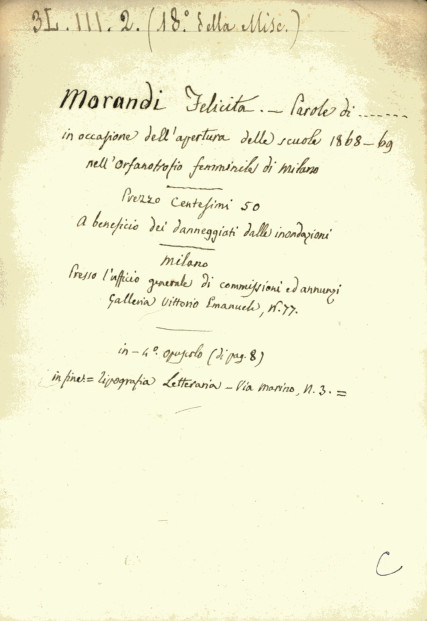 3L. III. 2. (18.° della Misc.)
Morandi Felicita. — Parole di .......
in occasione dell'apertura delle scuole 1868-69
nell'Orfanotrofio femminile di Milano
Prezzo Centesimi 50
A beneficio dei danneggiati dalle inondazioni
Milano
Presso l'ufficio generale di commissioni ed annunzi
Galleria Vittorio Emanuele, N.° 77.
in-4.° opuscolo (di pag. 8)
in fine: = Tipografia Letteraria — Via Marino, N. 3. =
C